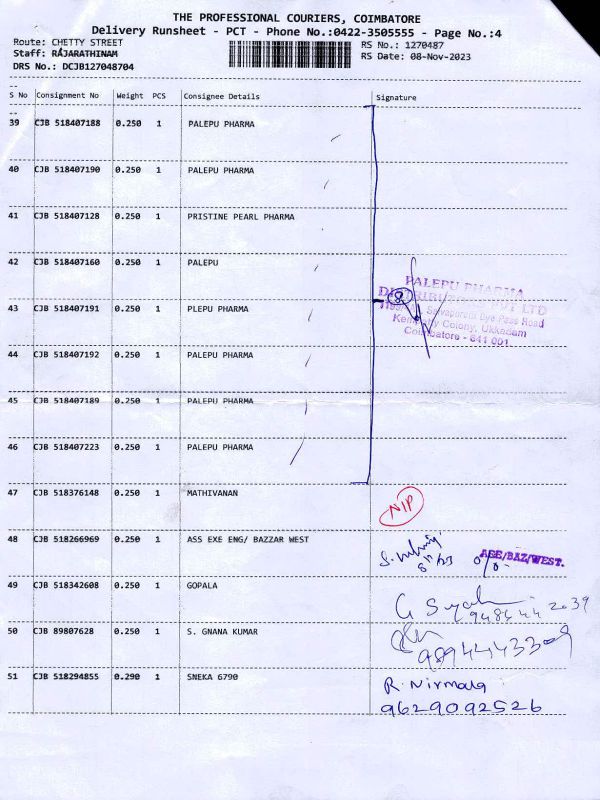 THE PROFESSIONAL COURIERS, COIMBATORE
Delivery Runsheet - PCT - Phone No.:0422-3505555 - Page No.:4
Route: CHETTY STREET
Staff: RAJARATHINAM
DRS No.: DCJB127048704
RS No.: 1270487
RS Date: 08-Nov-2023
S No Consignment No Weight PCS Consignee Details Signature
39 CJB 518407188 0.250 1 PALEPU PHARMA
40 CJB 518407190 0.250 1 PALEPU PHARMA
41 CJB 518407128 0.250 1 PRISTINE PEARL PHARMA
42 CJB 518407160 0.250 1 PALEPU
PALEPU PHARMA
PVT LTD
43 CJB 518407191 0.250 1 PLEPU PHARMA
Bye Pass Road
Colony, Ukkadam
Coimbatore - 641 001
44 CJB 518407192 0.250 1 PALEPU PHARMA
45 CJB 518407189 0.250 1 PALEPU PHARMA
46 CJB 518407223 0.250 1 PALEPU PHARMA
47 CJB 518376148 0.250 1 MATHIVANAN
NIP
48 CJB 518266969 0.250 1 ASS EXE ENG/ BAZZAR WEST
AEE/BAZ/WEST.
49 CJB 518342608 0.250 1 GOPALA
50 CJB 89807628 0.250 1 S. GNANA KUMAR
51 CJB 518294855 0.290 1 SNEKA 6790
R. Nirmala
9629092526